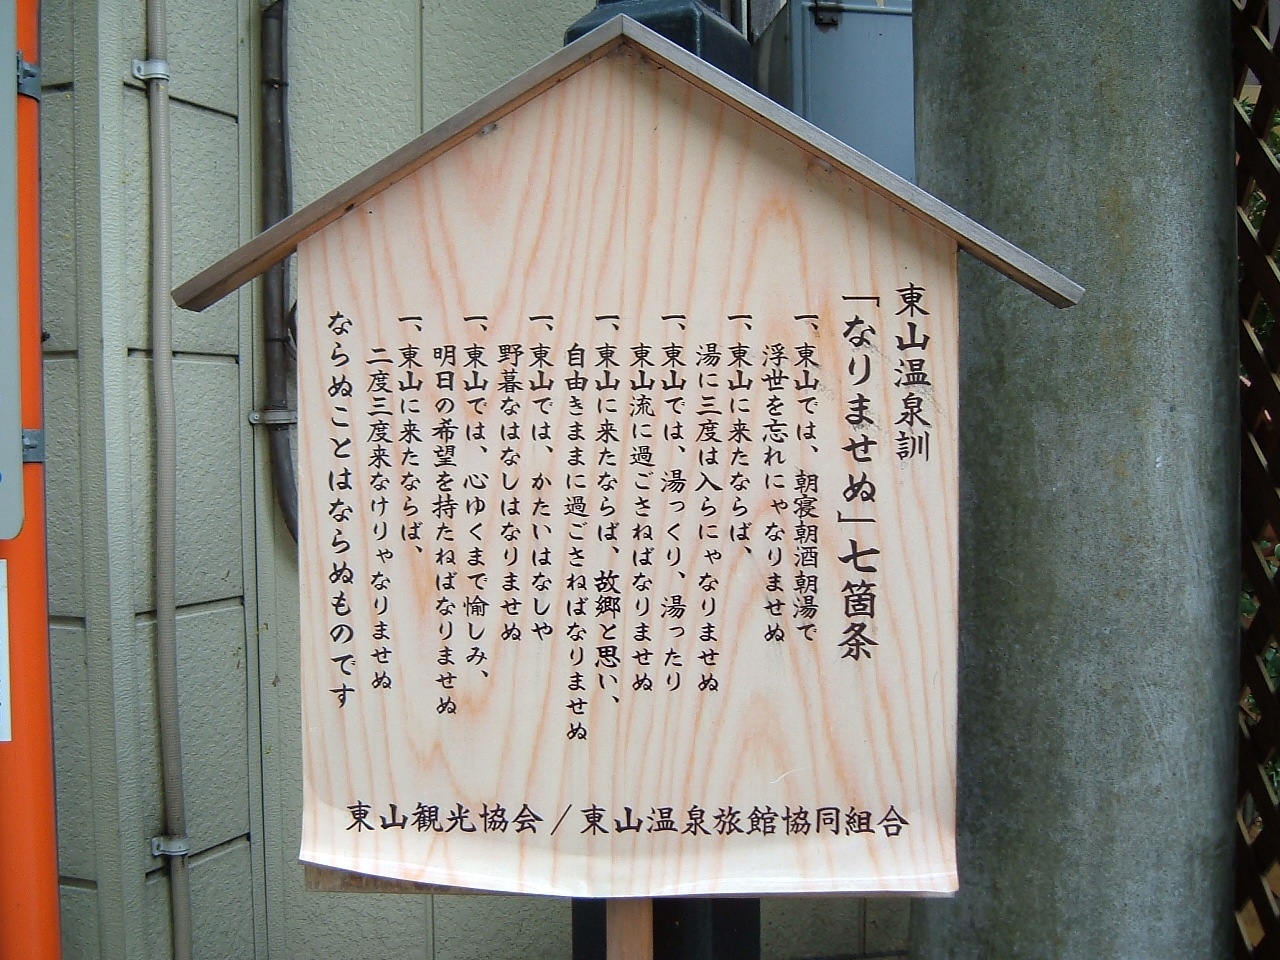 東山温泉訓
「なりませぬ」七箇条
一、東山では、朝寝朝酒朝湯で
浮世を忘れにゃなりませぬ
一、東山に来たならば、
湯に三度は入らにゃなりませぬ
一、東山では、湯っくり、湯ったり
東山流に過ごさねばなりませぬ
一、東山に来たならば、故郷と思い、
自由きままに過ごさねばなりませぬ
一、東山では、かたいはなしや
野暮なはなしはなりませぬ
一、東山では、心ゆくまで愉しみ、
明日の希望を持たねばなりませぬ
一、東山に来たならば、
二度三度来なけりゃなりませぬ
ならぬことはならぬものです
東山観光協会/東山温泉旅館協同組合